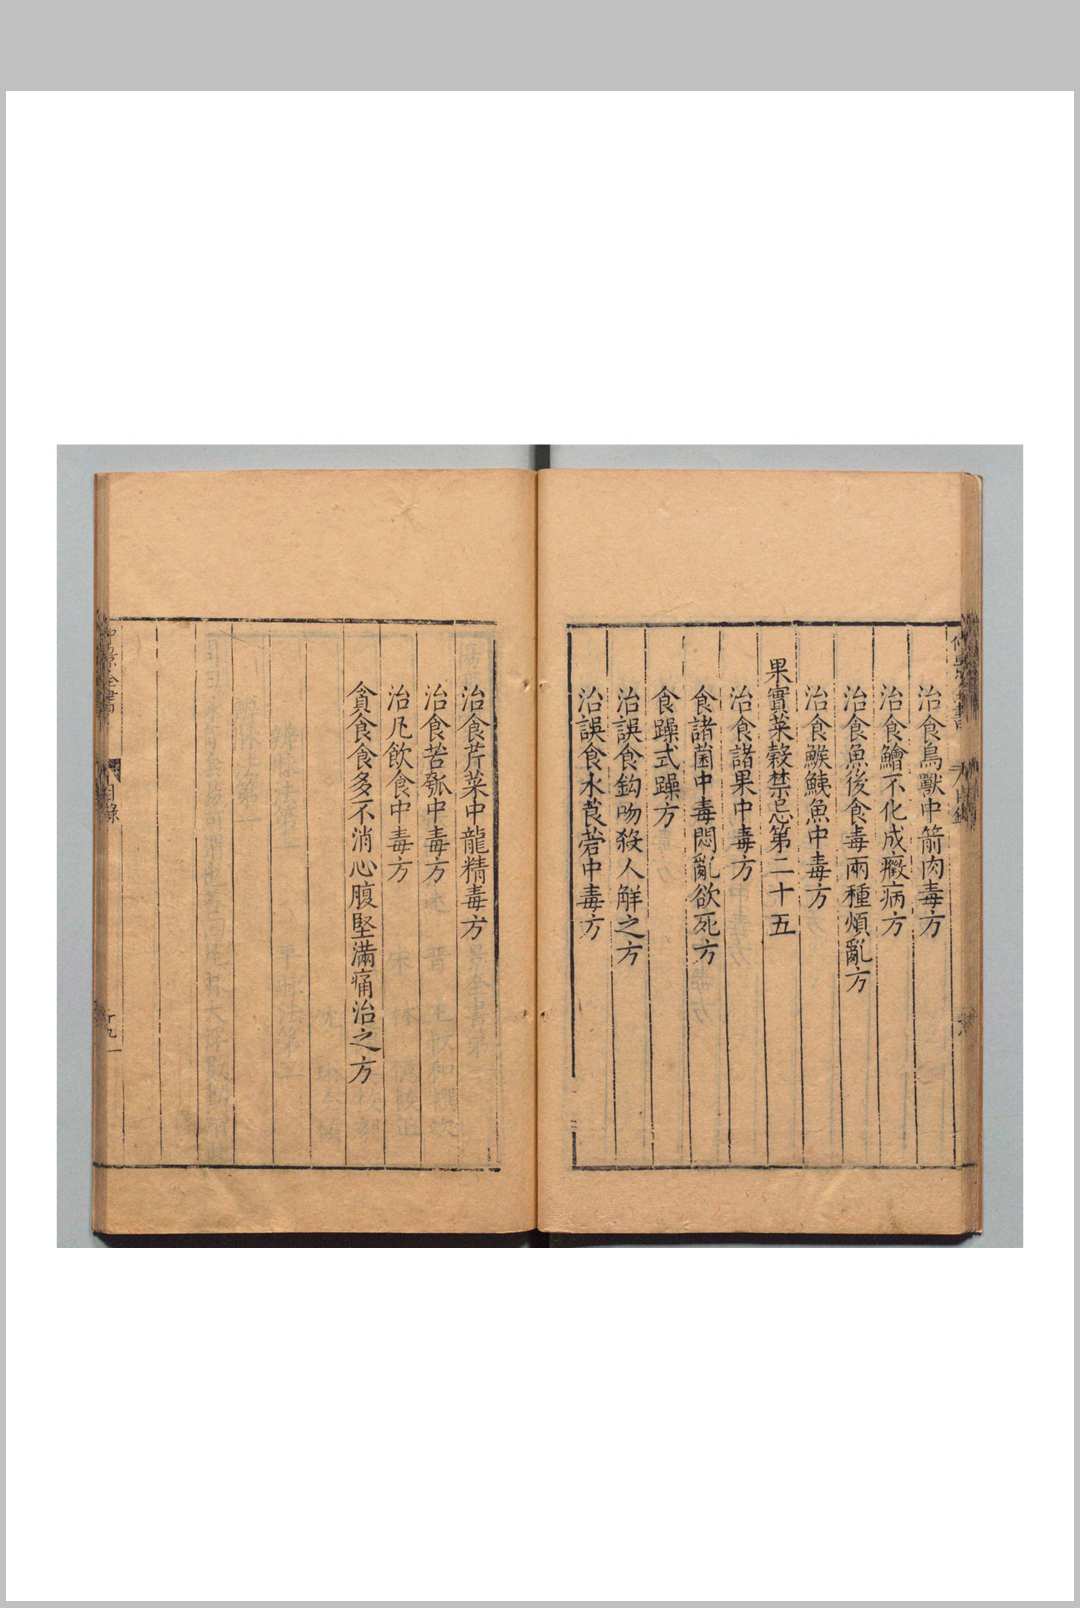 治食鳥獸中箭肉毒方
治食鱠不化成癥病方
治食魚後食毒兩種煩亂方
治食鯸鮧魚中毒方
果實菜穀禁忌第二十五
治食諸果中毒方
食諸菌中毒悶亂欲死方
食躁式躁方
治誤食鈎吻殺人解之方
治誤食水莨菪中毒方
治食芹菜中龍精毒方
治食苦瓠中毒方
治凡飲食中毒方
貪食食多不消心腹堅滿痛治之方
目錄